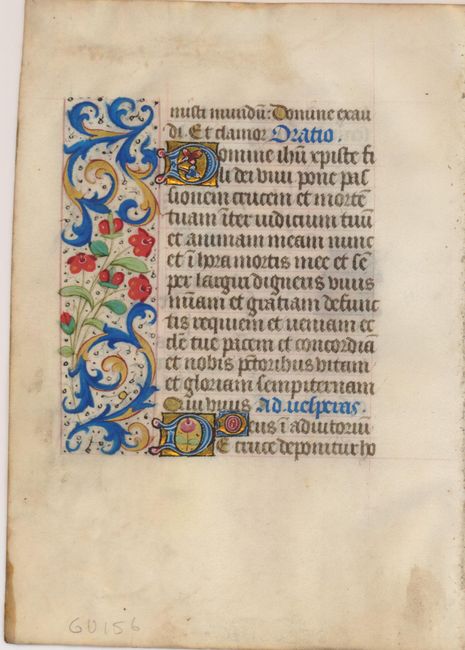 misti mundū: Domine exau
di. Et clamor Oratio.
Domine ihū xpiste fi
li dei vivi pone pas
sionem crucem et mortē
tuam īter iudicium tuū
et animam meam nunc
et ī hora mortis mee et lē
per largiri digneris vivis
miīam et gratiam defunc
tis requiem et veniam ec
cle tue pacem et concordiā
et nobis pctoribus vitam
et gloriam sempiternam
Qui vivis Ad vesperas.
Deus ī adiutoriū
De cruce deponitur ho
GU156